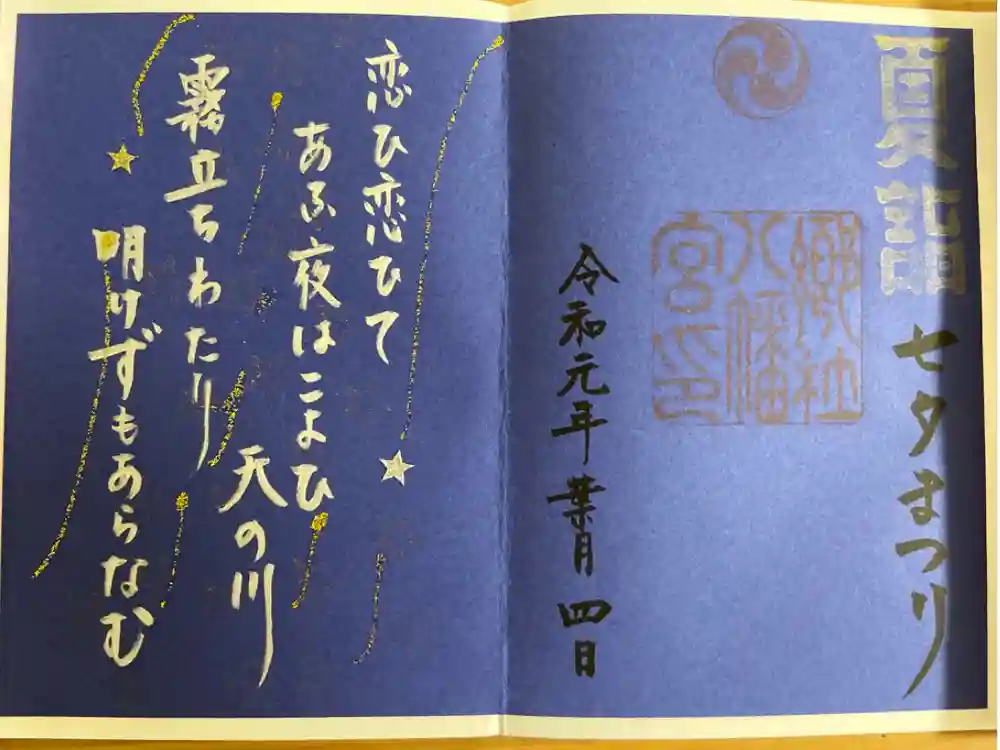 夏詣
七夕まつり
郷社
八幡
宮印
令和元年葉月四日
恋ひ恋ひて
あふ夜はこよひ
天の川
霧立ちわたり
明けずもあらなむ